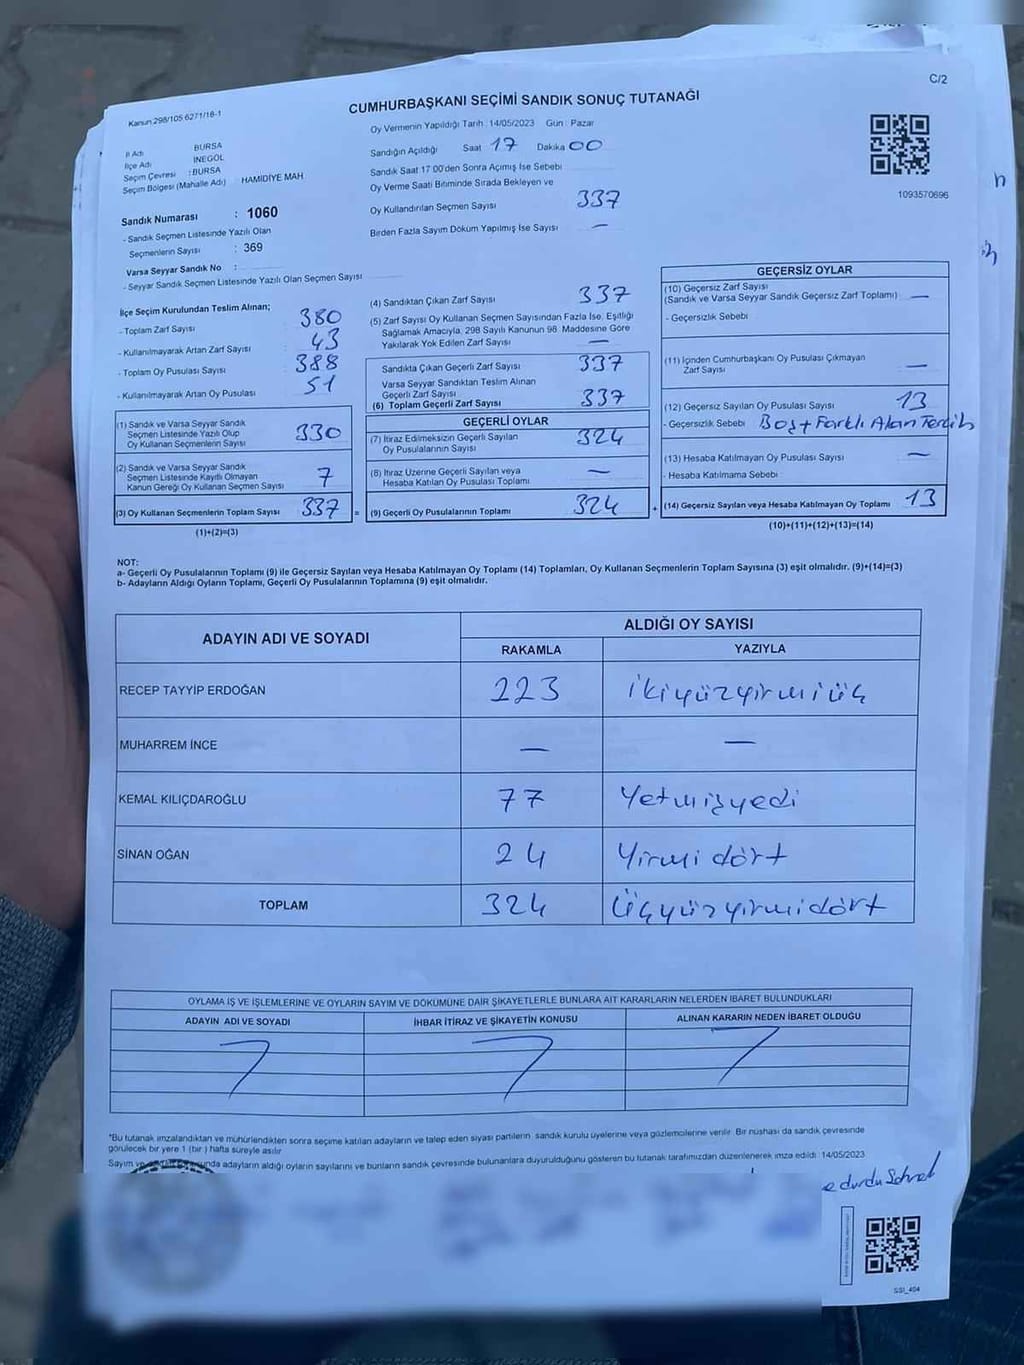 C/2
Kanun 298/105 6271/18-1
CUMHURBAŞKANI SEÇİMİ SANDIK SONUÇ TUTANAĞI
Oy Vermenin Yapıldığı Tarih : 14/05/2023 Gün : Pazar
İl Adı BURSA
İlçe Adı İNEGÖL
Seçim Çevresi : BURSA
Seçim Bölgesi (Mahalle Adı) : HAMİDİYE MAH
Sandığın Açıldığı Saat 17 Dakika 00
Sandık Saat 17 00'den Sonra Açımış İse Sebebi
Oy Verme Saati Bitiminde Sırada Bekleyen ve
Oy Kullandırılan Seçmen Sayısı 337
Birden Fazla Sayım Döküm Yapılmış İse Sayısı —
1093570696
Sandık Numarası : 1060
- Sandık Seçmen Listesinde Yazılı Olan
Seçmenlerin Sayısı : 369
Varsa Seyyar Sandık No :
- Seyyar Sandık Seçmen Listesinde Yazılı Olan Seçmen Sayısı
İlçe Seçim Kurulundan Teslim Alınan;
- Toplam Zarf Sayısı 380
- Kullanılmayarak Artan Zarf Sayısı 43
- Toplam Oy Pusulası Sayısı 388
- Kullanılmayarak Artan Oy Pusulası 51
(1) Sandık ve Varsa Seyyar Sandık
Seçmen Listesinde Yazılı Olup
Oy Kullanan Seçmenlerin Sayısı 330
(2) Sandık ve Varsa Seyyar Sandık
Seçmen Listesinde Kayıtlı Olmayan
Kanun Gereği Oy Kullanan Seçmen Sayısı 7
(3) Oy Kullanan Seçmenlerin Toplam Sayısı 337 =
(1)+(2)=(3)
(4) Sandıktan Çıkan Zarf Sayısı 337
(5) Zarf Sayısı Oy Kullanan Seçmen Sayısından Fazla İse, Eşitliği
Sağlamak Amacıyla, 298 Sayılı Kanunun 98. Maddesine Göre
Yakılarak Yok Edilen Zarf Sayısı —
Sandıkta Çıkan Geçerli Zarf Sayısı 337
Varsa Seyyar Sandıktan Teslim Alınan
Geçerli Zarf Sayısı
(6) Toplam Geçerli Zarf Sayısı 337
GEÇERLİ OYLAR
(7) İtiraz Edilmeksizin Geçerli Sayılan
Oy Pusulalarının Sayısı 324
(8) İtiraz Üzerine Geçerli Sayılan veya
Hesaba Katılan Oy Pusulası Toplamı —
(9) Geçerli Oy Pusulalarının Toplamı 324 +
GEÇERSİZ OYLAR
(10) Geçersiz Zarf Sayısı
(Sandık ve Varsa Seyyar Sandık Geçersiz Zarf Toplamı) —
- Geçersizlik Sebebi
(11) İçinden Cumhurbaşkanı Oy Pusulası Çıkmayan
Zarf Sayısı —
(12) Geçersiz Sayılan Oy Pusulası Sayısı 13
- Geçersizlik Sebebi Boş + Farklı Alan Tercih
(13) Hesaba Katılmayan Oy Pusulası Sayısı —
- Hesaba Katılmama Sebebi
(14) Geçersiz Sayılan veya Hesaba Katılmayan Oy Toplamı 13
(10)+(11)+(12)+(13)=(14)
NOT:
a- Geçerli Oy Pusulalarının Toplamı (9) ile Geçersiz Sayılan veya Hesaba Katılmayan Oy Toplamı (14) Toplamları, Oy Kullanan Seçmenlerin Toplam Sayısına (3) eşit olmalıdır. (9)+(14)=(3)
b- Adayların Aldığı Oyların Toplamı, Geçerli Oy Pusulalarının Toplamına (9) eşit olmalıdır.
ADAYIN ADI VE SOYADI ALDIĞI OY SAYISI
RAKAMLA YAZIYLA
RECEP TAYYİP ERDOĞAN 223 İkiyüzyirmiüç
MUHARREM İNCE — —
KEMAL KILIÇDAROĞLU 77 Yetmişyedi
SİNAN OĞAN 24 Yirmi dört
TOPLAM 324 Üçyüzyirmidört
OYLAMA İŞ VE İŞLEMLERİNE VE OYLARIN SAYIM VE DÖKÜMÜNE DAİR ŞİKAYETLERLE BUNLARA AİT KARARLARIN NELERDEN İBARET BULUNDUKLARI
ADAYIN ADI VE SOYADI İHBAR İTİRAZ VE ŞİKAYETİN KONUSU ALINAN KARARIN NEDEN İBARET OLDUĞU
*Bu tutanak imzalandıktan ve mühürlendikten sonra seçime katılan adayların ve talep eden siyasi partilerin sandık kurulu üyelerine veya gözlemcilerine verilir. Bir nüshası da sandık çevresinde
görülecek bir yere 1 (bir) hafta süreyle asılır
Sayım ve adayların aldığı oyların sayılarını ve bunların sandık çevresinde bulunanlara duyurulduğunu gösteren bu tutanak tarafımızdan düzenlenerek imza edildi 14/05/2023
SSI_404